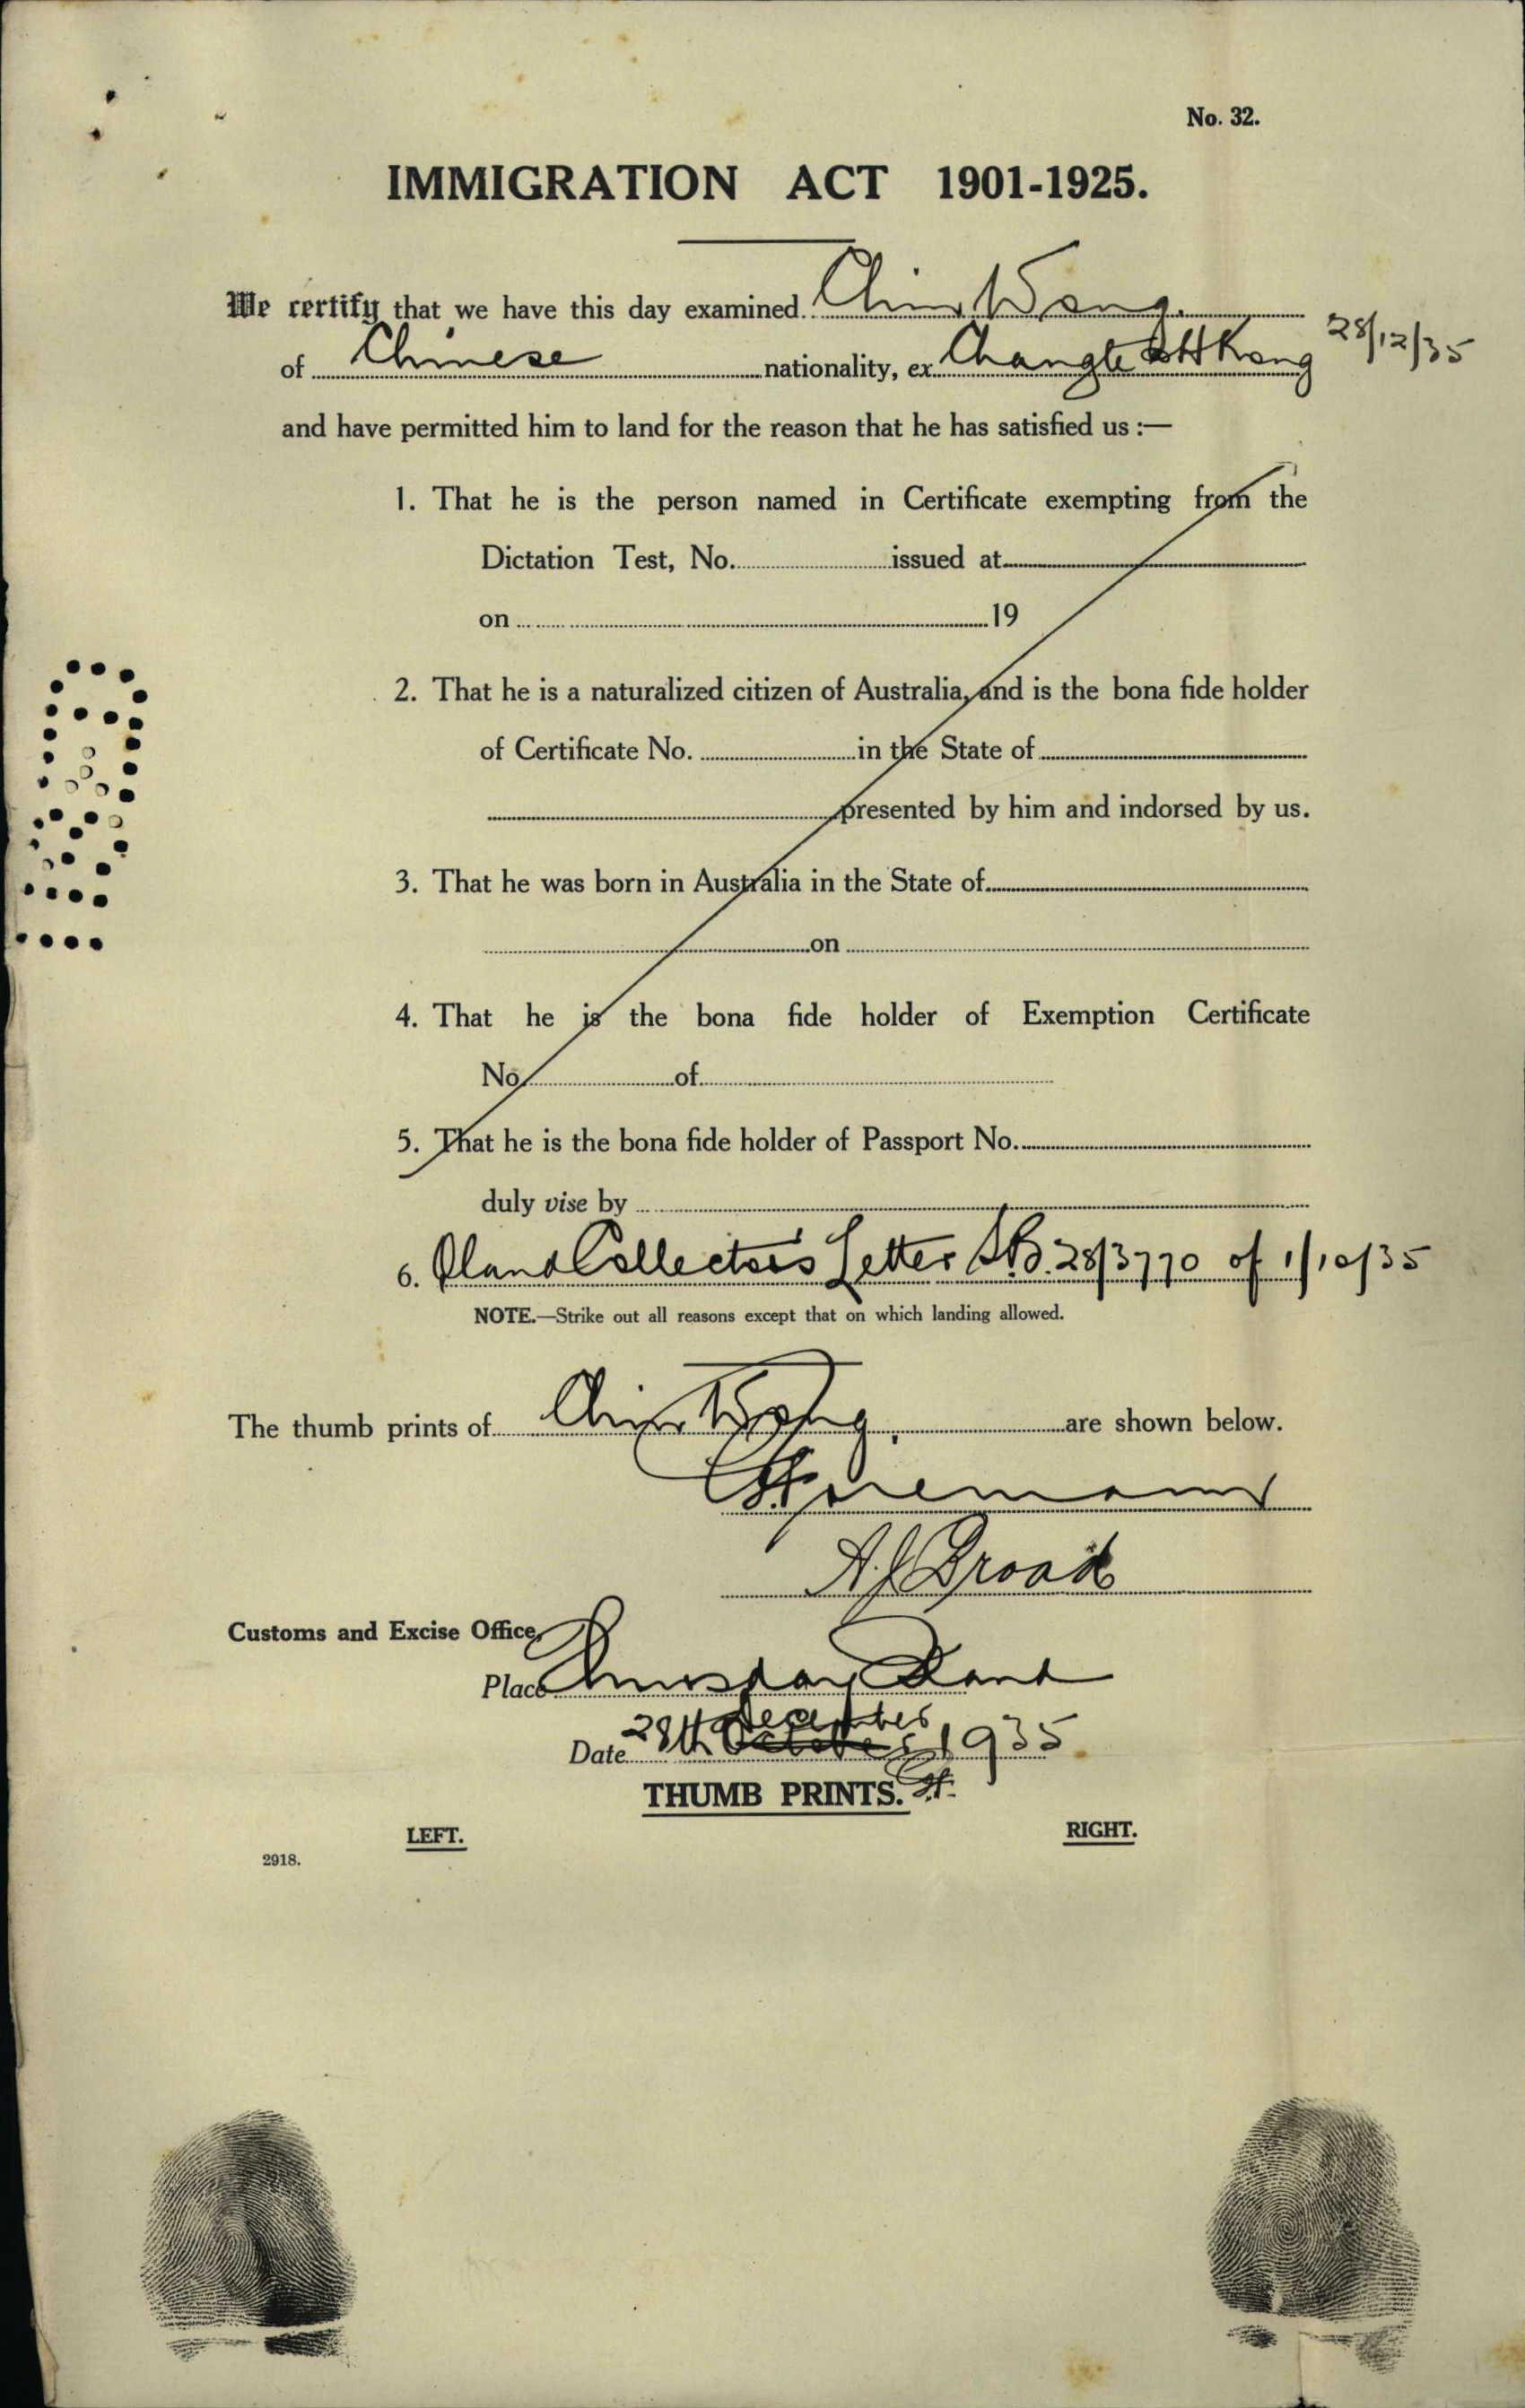 No. 32.
IMMIGRATION ACT 1901-1925.
We certify that we have this day examined Chin Wang.
of Chinese nationality, ex Changte HKong 28/12/35
and have permitted him to land for the reason that he has satisfied us :—
1. That he is the person named in Certificate exempting from the
Dictation Test, No. issued at
on 19
2. That he is a naturalized citizen of Australia, and is the bona fide holder
of Certificate No. in the State of
presented by him and indorsed by us.
3. That he was born in Australia in the State of
on
4. That he is the bona fide holder of Exemption Certificate
No. of
5. That he is the bona fide holder of Passport No.
duly vise by
6. Qland Collector's Letter 28/3770 of 1/10/35
NOTE.—Strike out all reasons except that on which landing allowed.
The thumb prints of Chin Wang, are shown below.
A J Broad
Customs and Excise Office,
Place Thursday Island
December
Date 28th October 1935.
THUMB PRINTS.
LEFT. RIGHT.
2918.